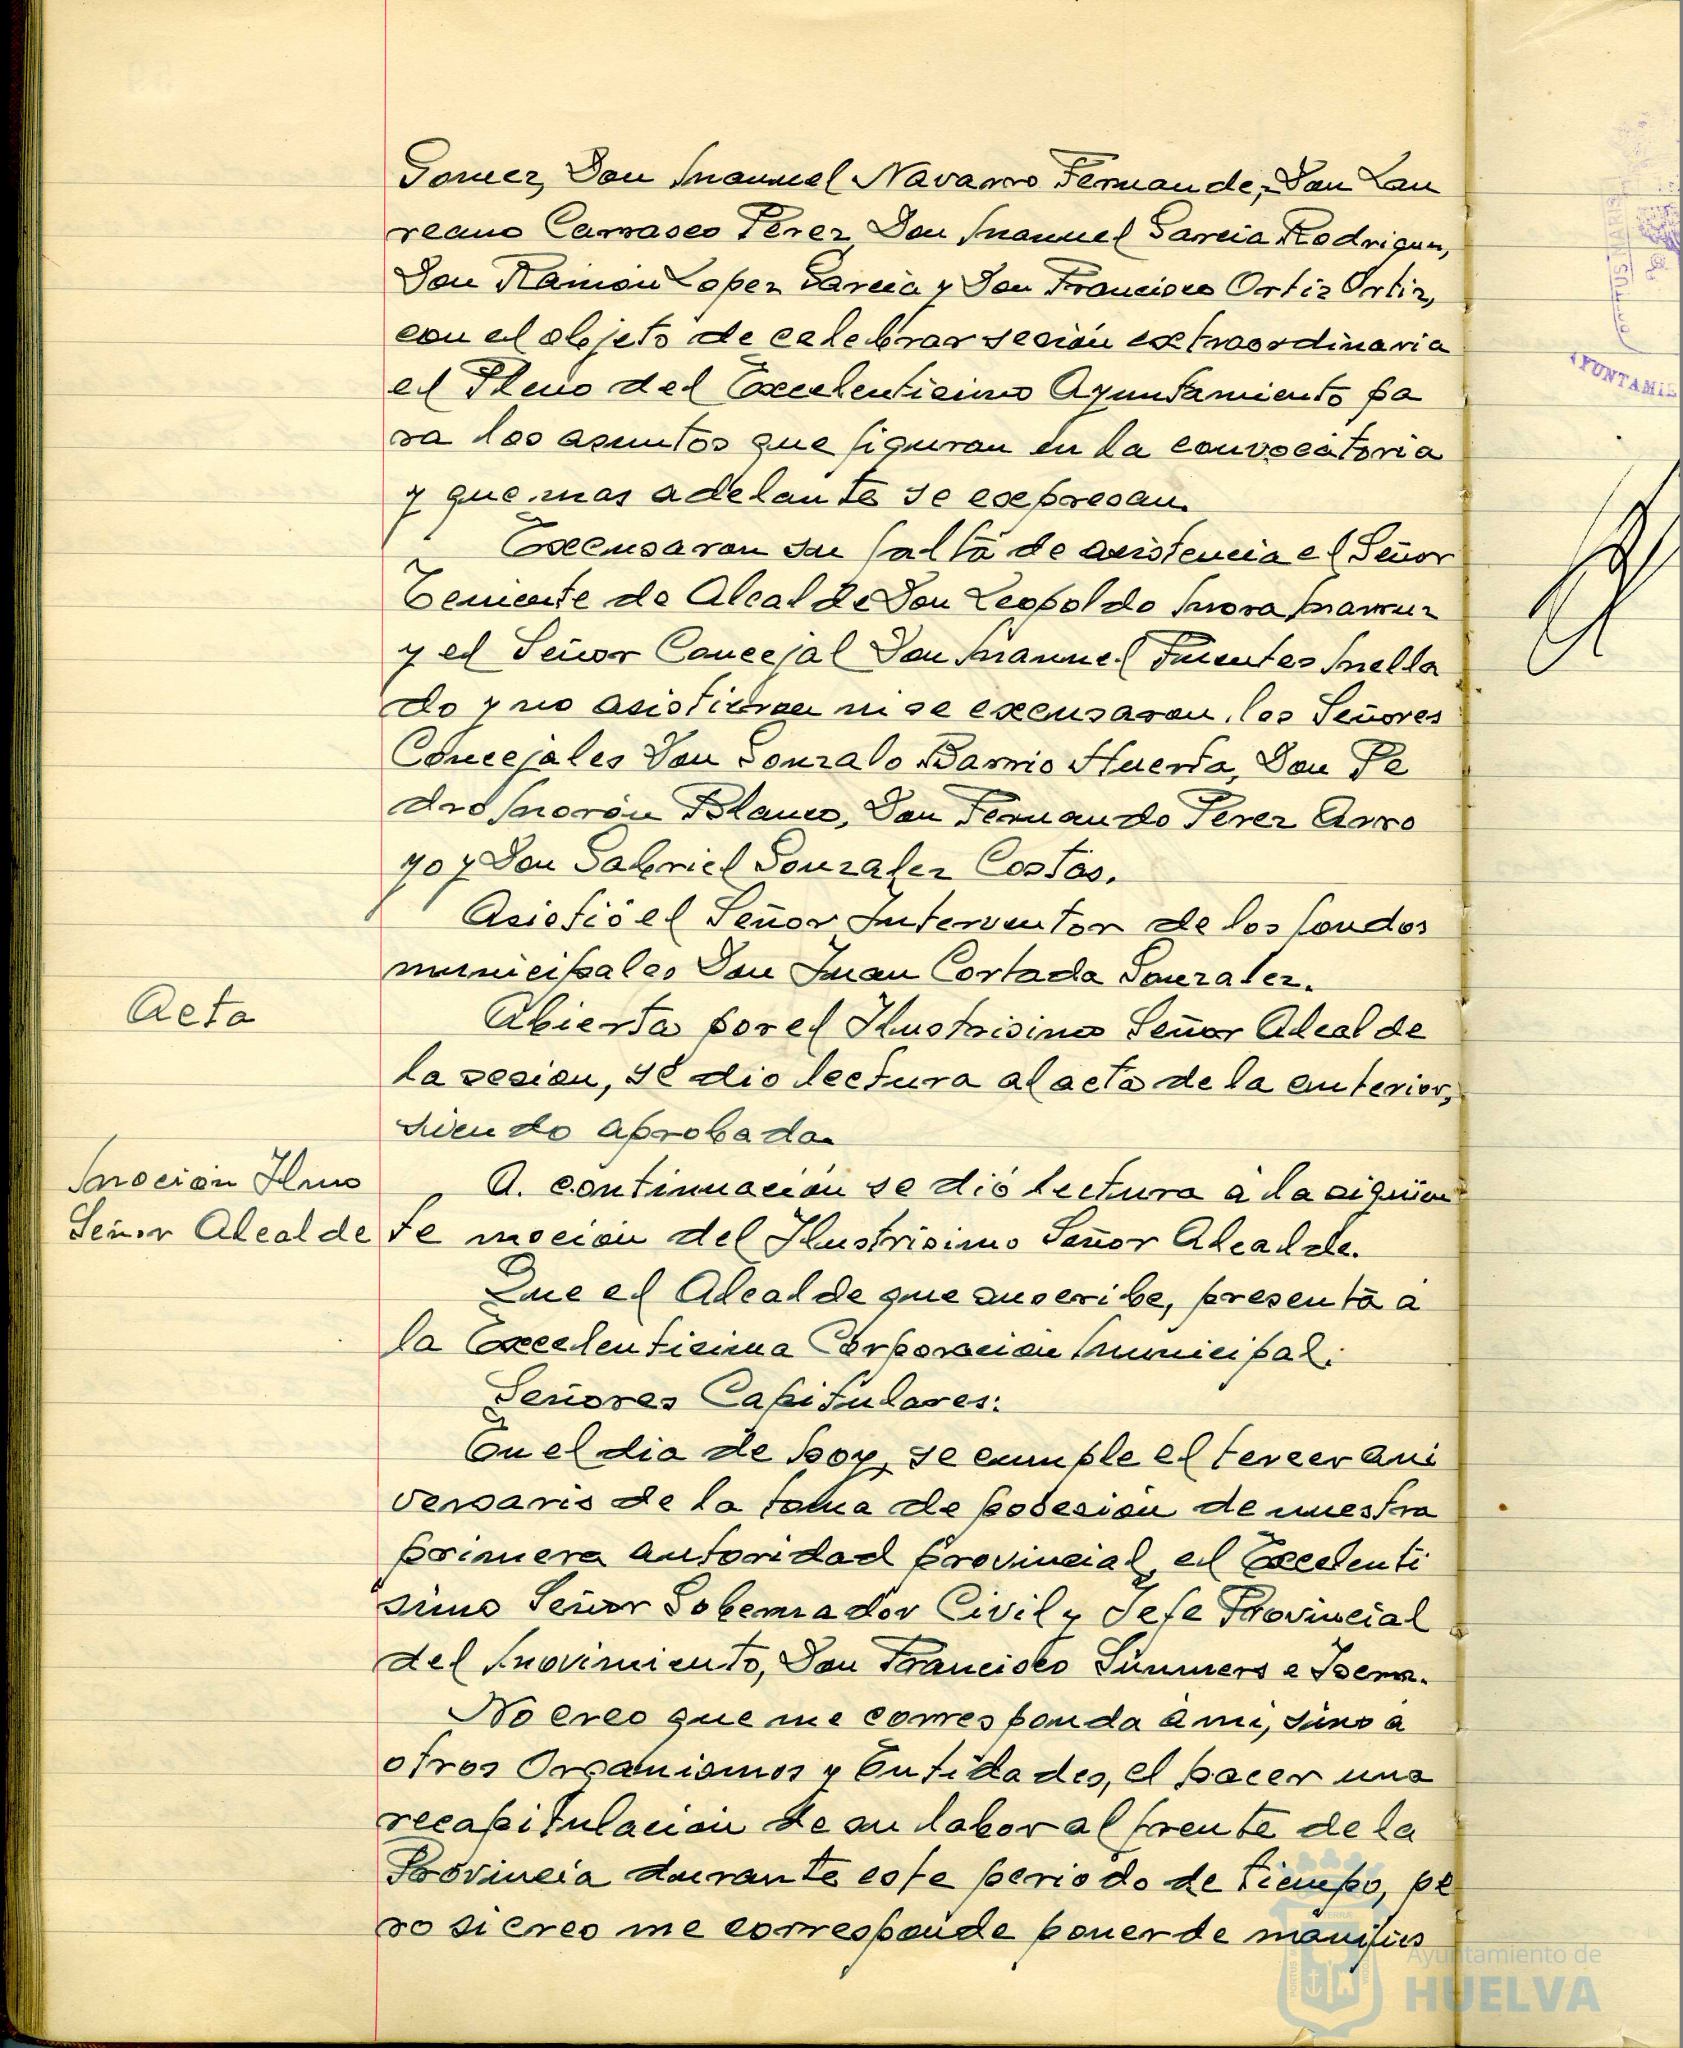 Gomez, Don Manuel Navarro Fernandez, Don Lau
reano Carrasco Perez, Don Manuel Garcia Rodriguez,
Don Ramón Lopez Garcia y Don Francisco Ortiz Ortiz,
con el objeto de celebrar sesión extraordinaria
el Pleno del Excelentisimo Ayuntamiento pa
ra los asuntos que figuran en la convocatoria
y que mas adelante se expresan.
Excusaron su falta de asistencia el Señor
Teniente de Alcalde Don Leopoldo Mora
y el Señor Concejal Don Manuel Fuentes Mella
do y no asistieron ni se excusaron los Señores
Concejales Don Gonzalo Barrio Huerta, Don Pe
dro Morón Blanco, Don Fernando Perez Arro
yo y Don Gabriel Gonzalez Costas.
Asistió el Señor Interventor de los fondos
municipales Don Juan Cortada Gonzalez.
Acta
Abierta por el Ilustrisimo Señor Alcalde
la sesion, se dio lectura al acta de la anterior,
siendo aprobada.
Moción Ilmo
Señor Alcalde
A continuación se dió lectura á la siguien
te moción del Ilustrisimo Señor Alcalde.
Que el Alcalde que suscribe, presenta á
la Excelentisima Corporación Municipal.
Señores Capitulares:
En el dia de hoy, se cumple el tercer ani
versario de la toma de posesión de nuestra
primera autoridad provincial, el Excelenti
simo Señor Gobernador Civil y Jefe Provincial
del Movimiento, Don Francisco Summers e Isern.
No creo que me corresponda á mi, sino á
otros Organismos y Entidades, el hacer una
recapitulación de su labor al frente de la
Provincia durante este periodo de tiempo, pe
ro si creo me corresponde poner de manifies
AYUNTAMIE
Ayuntamiento de
HUELVA